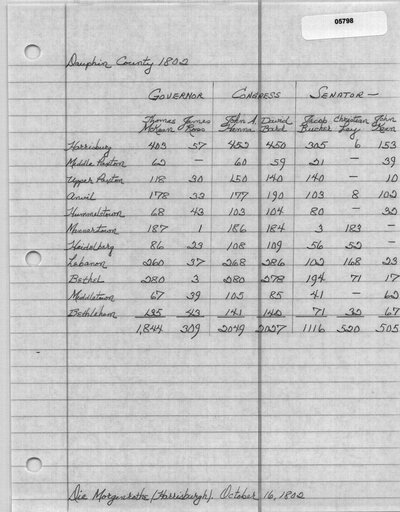 05798
Dauphin County 1802
GOVERNOR CONGRESS SENATOR —
Thomas James John A. David Jacob Christian John
McKean Ross Hanna Bard Bucher Lay Kean
Harrisburg 403 57 452 450 305 6 153
Middle Paxton 62 — 60 59 21 — 39
Upper Paxton 118 30 150 140 140 — 10
Anvil 178 33 177 190 103 8 102
Hummelstown 68 43 103 104 80 — 32
187 1 186 184 3 183 —
Heidelberg 86 23 108 109 56 52 —
Lebanon 260 37 268 286 102 168 23
Bethel 280 3 280 278 194 71 17
Middletown 67 39 105 85 41 — 62
Bethlehem 135 43 141 140 71 32 67
1,844 309 2049 2027 1116 520 505
Die Morgenrothe (Harrisburgh). October 16, 1802